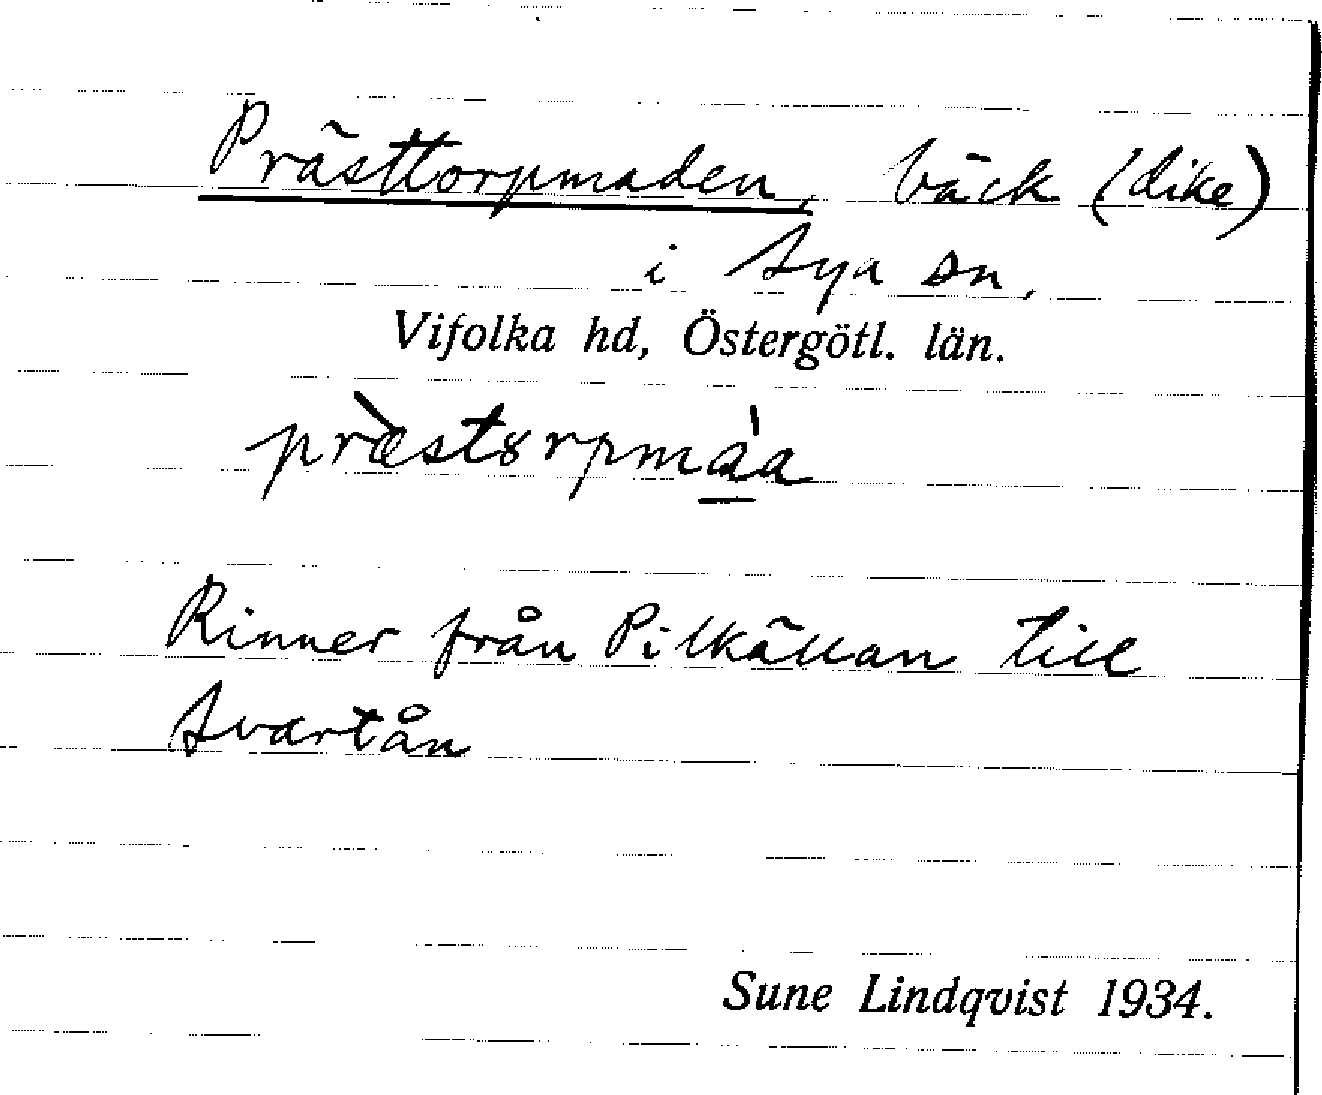 Prästtorpmaden, bäck (dike)
i Sya sn,
Vifolka hd, Östergötl. län.
præ̀stɤrpmáa
Rinner från Pilkällan till
Svartån
Sune Lindqvist 1934.